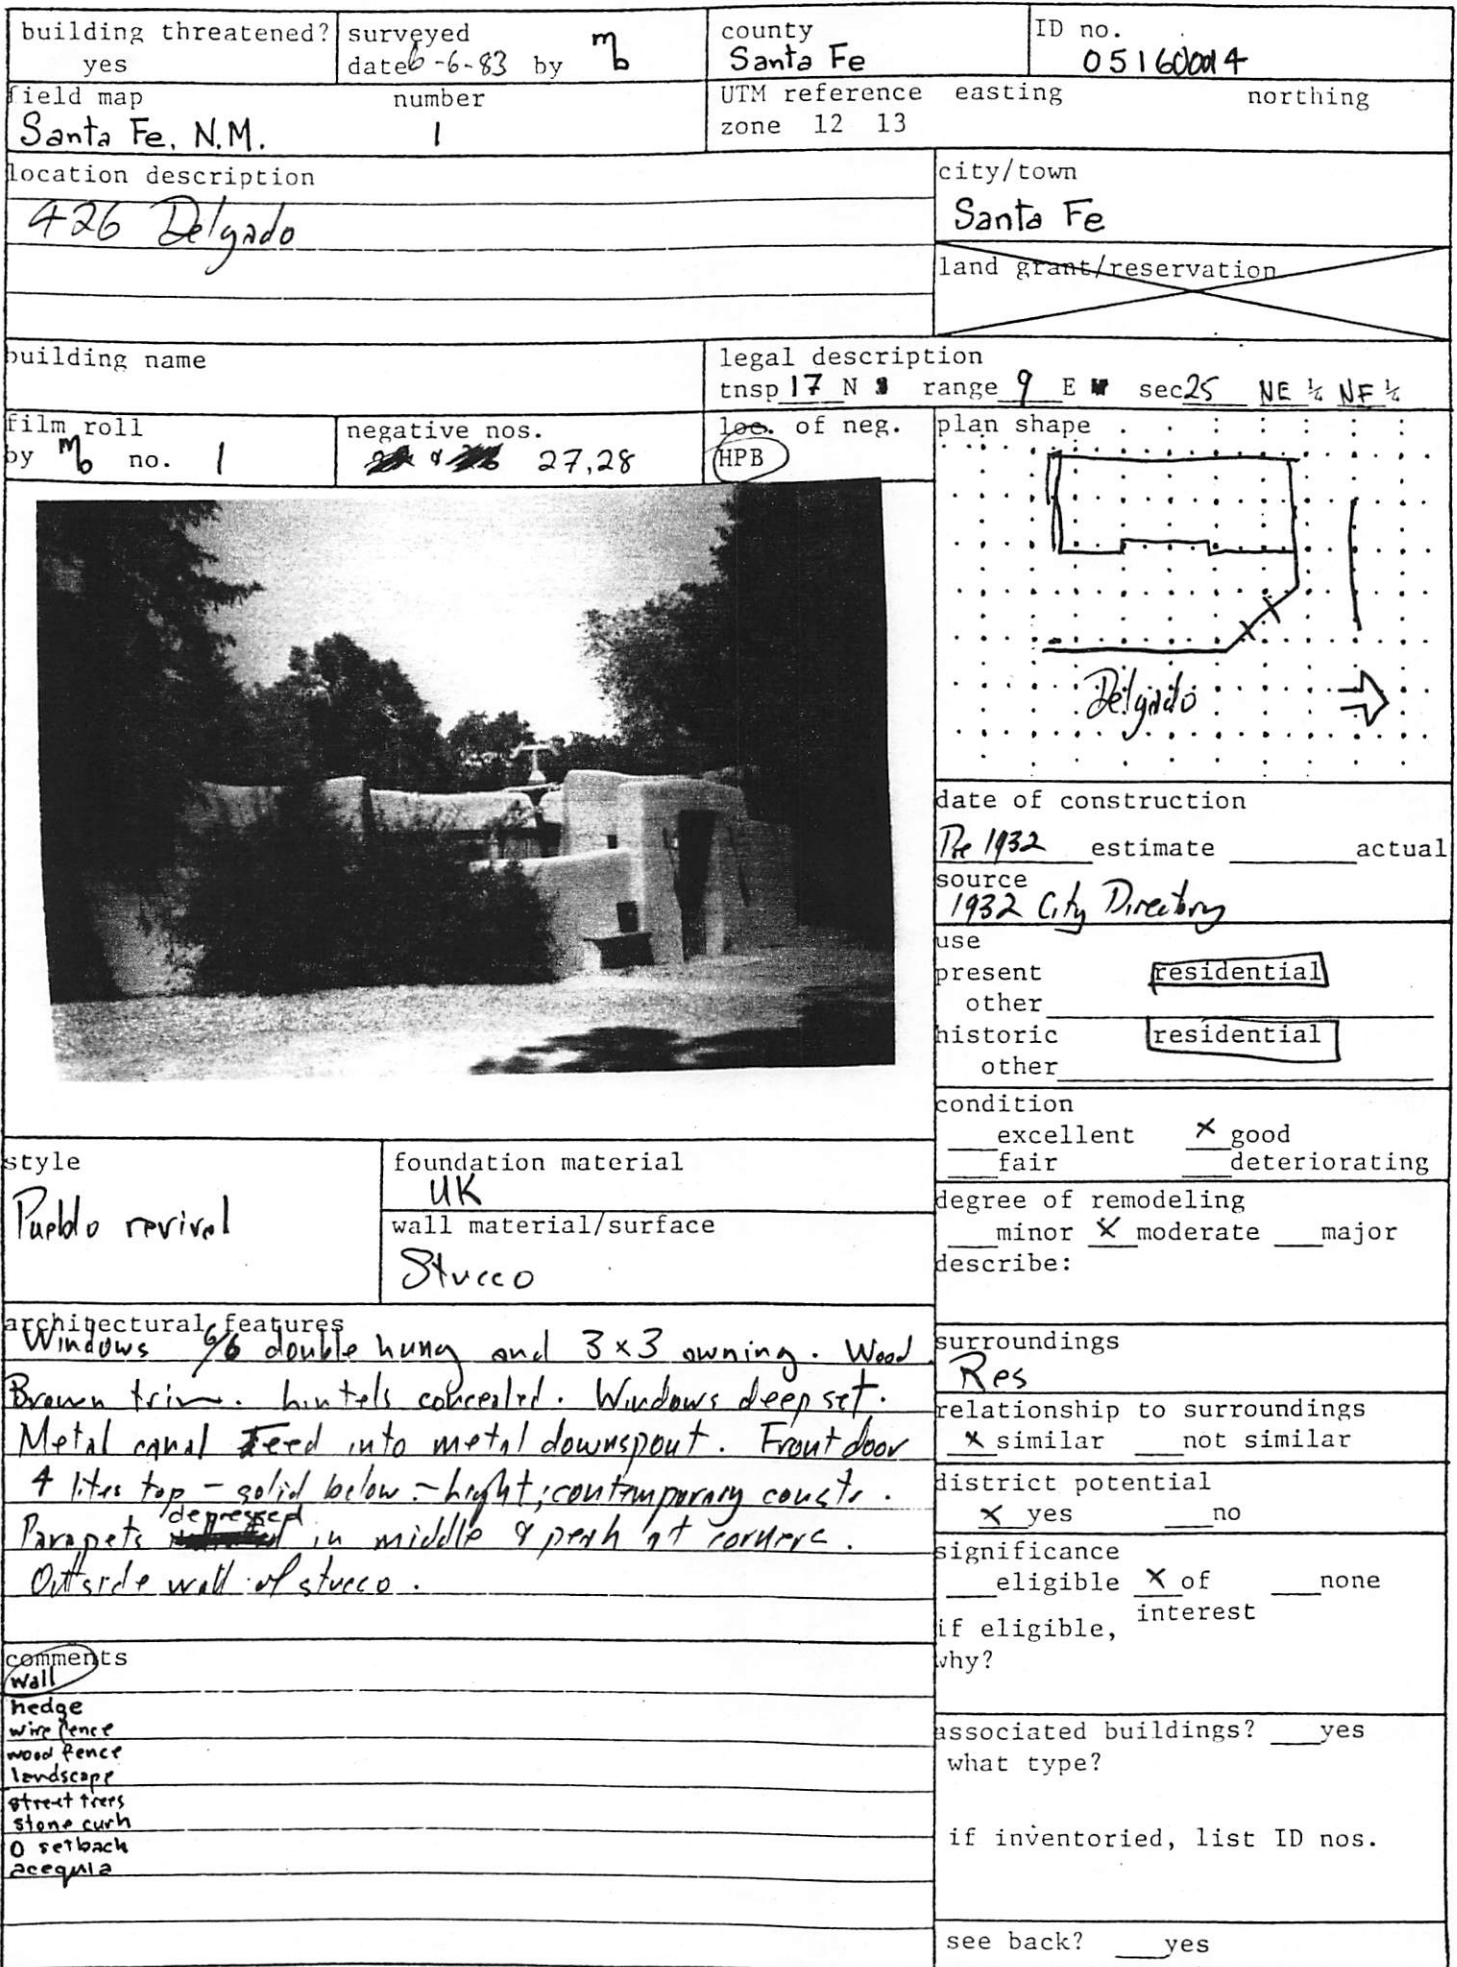 building threatened? yes
surveyed date 6-6-83 by mb
county Santa Fe
ID no. 05160014
field map Santa Fe, N.M. number 1
UTM reference easting northing
zone 12 13
location description
426 Delgado
city/town
Santa Fe
land grant/reservation
building name
legal description
tnsp 17 N range 9 E sec 25 NE ¼ NE ¼
film roll
by mb no. 1
negative nos.
27,28
loc. of neg.
HPB
plan shape
Delgado
date of construction
Pre 1932 estimate actual
source
1932 City Directory
use
present residential
other
historic residential
other
condition
excellent x good
fair deteriorating
style
Pueblo revival
foundation material
UK
wall material/surface
Stucco
degree of remodeling
minor x moderate major
describe:
architectural features
Windows 6/6 double hung and 3x3 awning. Wood.
Brown trim. Lintels concealed. Windows deep set.
Metal canal feed into metal downspout. Front door
4 lites top - solid below - light, contemporary constr.
Parapets depressed in middle & peak at corners.
Outside wall of stucco.
surroundings
Res
relationship to surroundings
x similar not similar
district potential
x yes no
significance
eligible x of interest none
if eligible,
why?
comments
wall
hedge
wire fence
wood fence
landscape
street trees
stone curb
0 setback
acequia
associated buildings? yes
what type?
if inventoried, list ID nos.
see back? yes